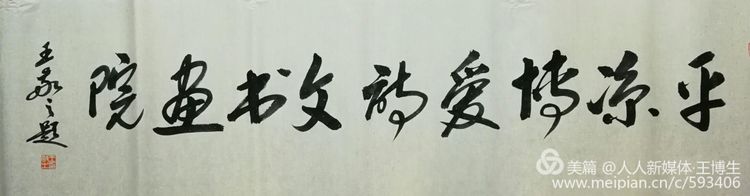 平凉博爱诗文书画院
王家之题
美篇 @人人新媒体·王博生
www.meipian.cn/c/593406